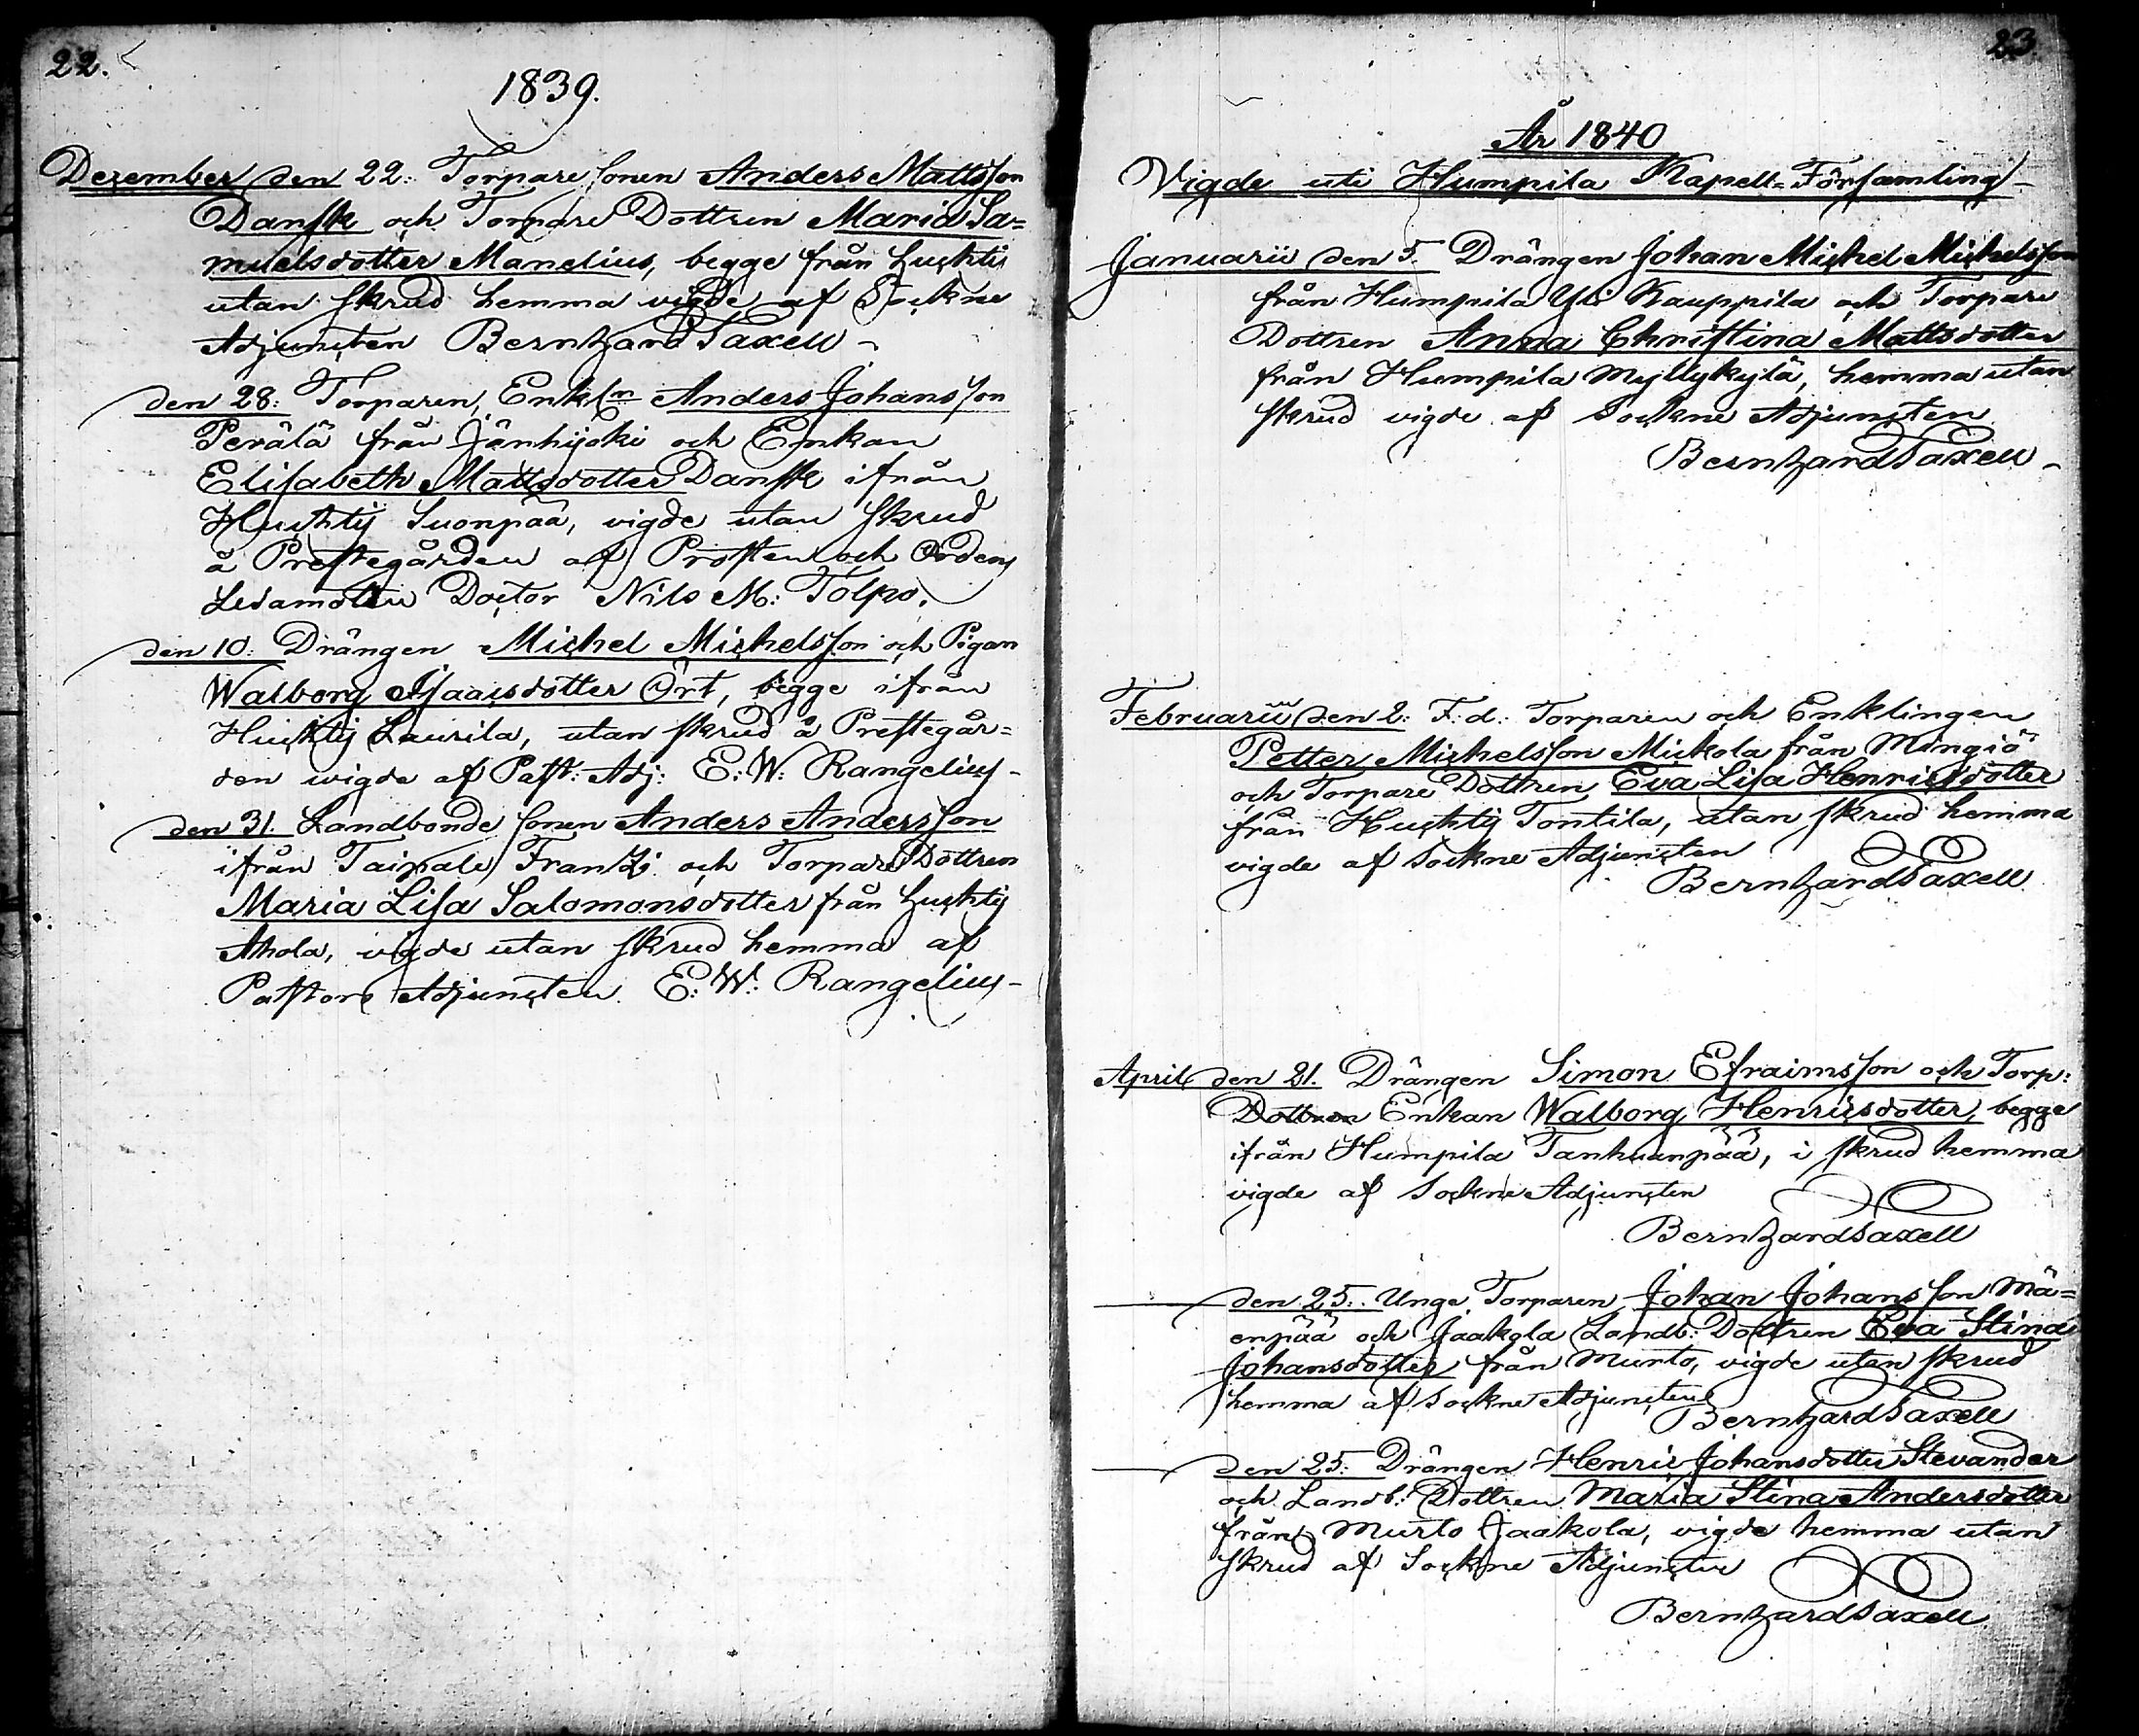 22.
1839.
Dezember den 22: Torpare sonen Anders Mattsson
Danske och Torpare Dottren Maria Sa=
muelsdotter Manelius, begge från Huchtis
utan skrud hemma vigde af Sockne
Adjuncten Bernhard Saxell -
den 28: Torparen, Enkl:n Anders Johansson
Perälä från Jänhijoki och Enkan
Elisabeth Mattsdotter Danske ifrån
Huchtij Suonpää, vigde utan skrud
å Prestegården af Prosten och Ordens
Ledamoten Doctor Nils M: Tolpo.
den 10: Drängen Michel Michelsson och Pigan
Walborg Isaacsdotter Ört, begge ifrån
Huchtij Laurila, utan skrud å Prestegår=
den wigde af Past: Adj: E: W: Rangelius -
den 31. Landbonde sonen Anders Andersson
ifrån Taipale Frantzi och Torpare Dottren
Maria Lisa Salomonsdotter från Huchtij
Ahola, vigde utan skrud hemma af
Pastors Adjuncten. E: W: Rangelius -
23.
År 1840
Vigde uti Humpila Kapell=Församling -
Januarii den 5. Drängen Johan Michel Michelsson
från Humpila Yli Kauppila och Torpare
Dottren Anna Christina Mattsdotter
från Humpila Myllykylä, hemma utan
skrud vigde af Sockne Adjuncten
Bernhard Saxell -
Februarii den 2: F: d: Torparen och Enklingen
Petter Michelsson Mickola från Mingiö
och Torpare Dottren Eva Lisa Henricsdotter
från Huchtij Tontila, utan skrud hemma
vigde af Sockne Adjuncten
Bernhard Saxell
April den 21. Drängen Simon Efraimsson och Torp:
Dottren Enkan Walborg Henricsdotter, begge
ifrån Humpila Tanhuanpää, i skrud hemma
vigde af Sockne Adjuncten
Bernhard Saxell
den 25: Unge Torparen Johan Johansson Mä=
enpää och Jaakola Landb: Dottren Eva Stina
Johansdotter från Murto, vigde utan skrud
hemma af Sockne Adjuncten
Bernhard Saxell
den 25: Drängen Henric Johansdotter Stevander
och Landb: Dottren Maria Stina Andersdotter
från Murto Jaakola, vigde hemma utan
skrud af Sockne Adjuncten
Bernhard Saxell